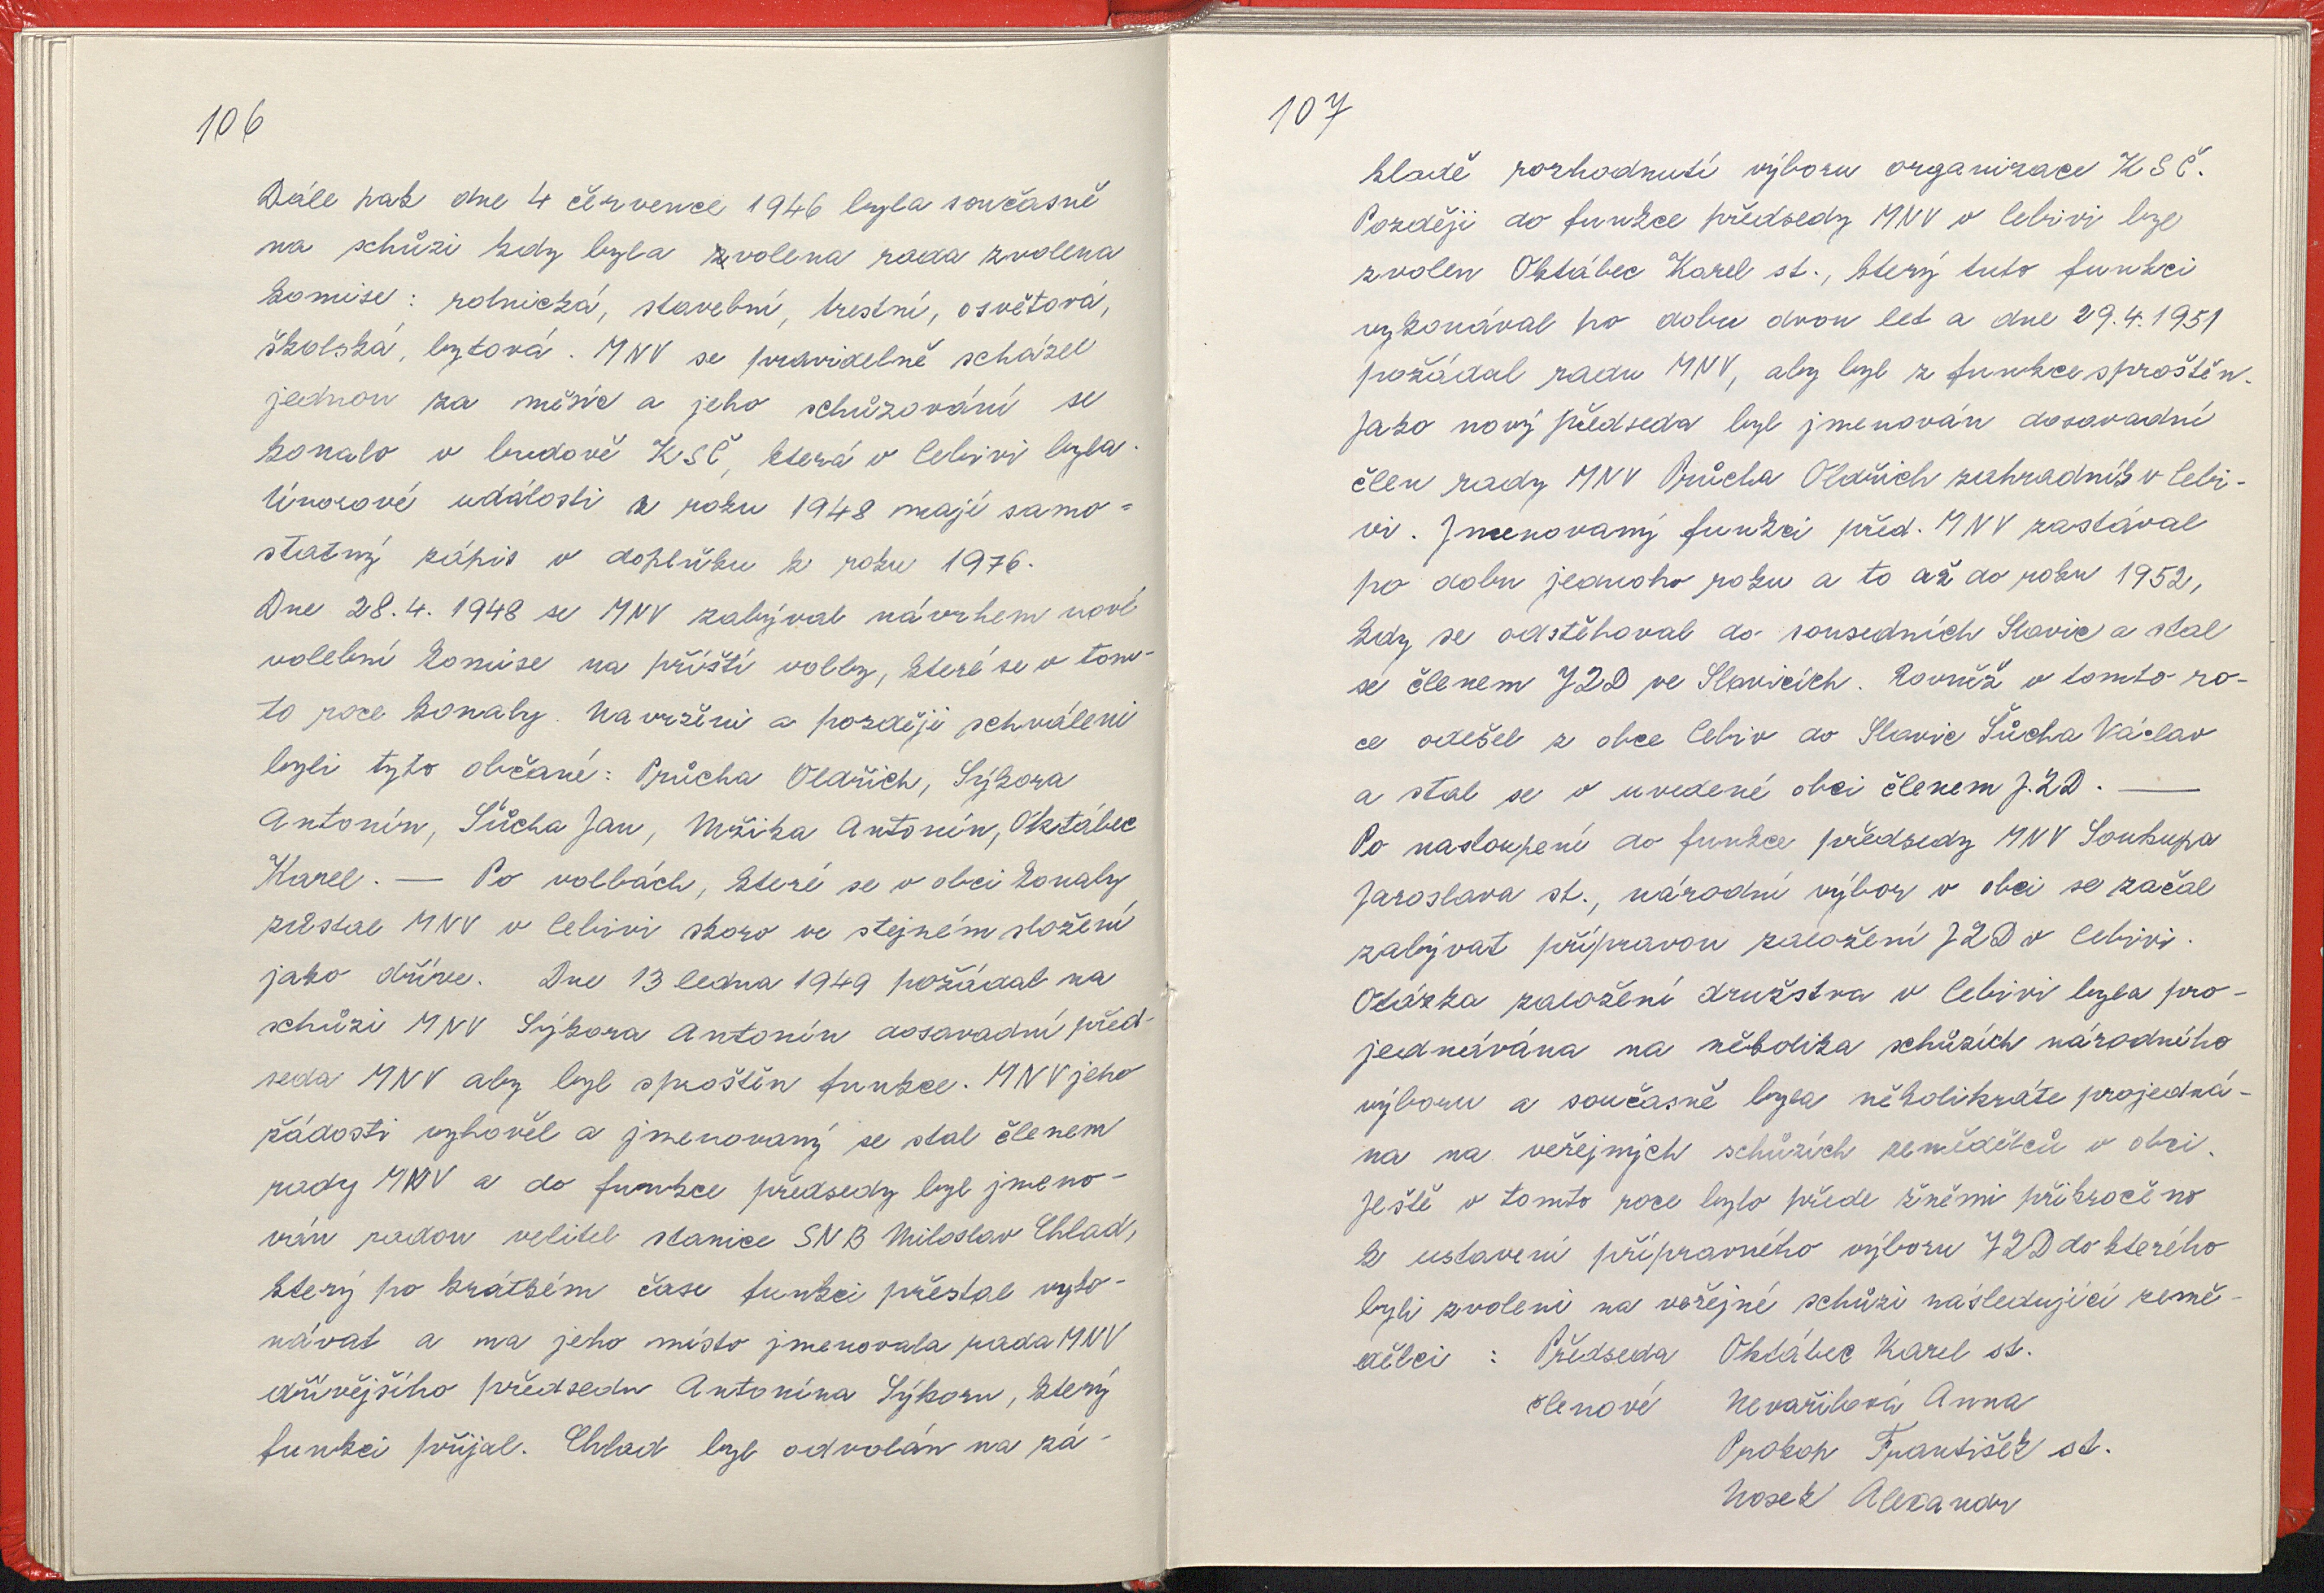 106
Dále pak dne 4 července 1946 byla současně
na schůzi kdy byla zvolena rada zvolena
komise: rolnická, stavební, trestní, osvětová,
školská, bytová. MNV se pravidelně scházel
jednou za měsíc a jeho schůzování se
konalo v budově KSČ, která v Cebivi byla.
Únorové události z roku 1948 mají samo=
statný zápis v doplňku k roku 1976.
Dne 28.4. 1948 se MNV zabýval návrhem nové
volební komise na příští volby, které se v tom-
to roce konaly. Navrženi a později schváleni
byli tyto občané: Průcha Oldřich, Sýkora
Antonín, Šůcha Jan, Mžika Antonín, Oktábec
Karel. — Po volbách, které se v obci konaly
zůstal MNV v Cebivi skoro ve stejném složení
jako dříve. Dne 13 ledna 1949 požádal na
schůzi MNV Sýkora Antonín dosavadní před-
seda MNV aby byl sproštěn funkce. MNV jeho
žádosti vyhověl a jmenovaný se stal členem
rady MNV a do funkce předsedy byl jmeno-
ván radou velitel stanice SNB Miloslav Chlad,
který po krátkém čase funkci přestal vyko-
návat a na jeho místo jmenovala rada MNV
dřívějšího předsedu Antonína Sýkoru, který
funkci přijal. Chlad byl odvolán na zá-
107
kladě rozhodnutí výboru organizace KSČ.
Později do funkce předsedy MNV v Cebivi byl
zvolen Oktábec Karel st., který tuto funkci
vykonával po dobu dvou let a dne 29.4.1951
požádal radu MNV, aby byl z funkce sproštěn.
Jako nový předseda byl jmenován dosavadní
člen rady MNV Průcha Oldřich zahradník v Cebi-
vi. Jmenovaný funkci před. MNV zastával
po dobu jednoho roku a to až do roku 1952,
kdy se odstěhoval do sousedních Slavic a stal
se členem JZD ve Slavicích. Rovněž v tomto ro-
ce odešel z obce Cebiv do Slavic Šůcha Václav
a stal se v uvedené obci členem JZD. —
Po nastoupení do funkce předsedy MNV Soukupa
Jaroslava st., národní výbor v obci se začal
zabývat přípravou založení JZD v Cebivi.
Otázka založení družstva v Cebivi byla pro-
jednávána na několika schůzích národního
výboru a současně byla několikráte projedná-
na na veřejných schůzích zemědělců v obci.
Ještě v tomto roce bylo přede žněmi přikročeno
k ustavení přípravného výboru JZD do kterého
byli zvoleni na veřejné schůzi následující země-
dělci : Předseda Oktábec Karel st.
členové Nevařilová Anna
Prokop František st.
Nosek Alexandr